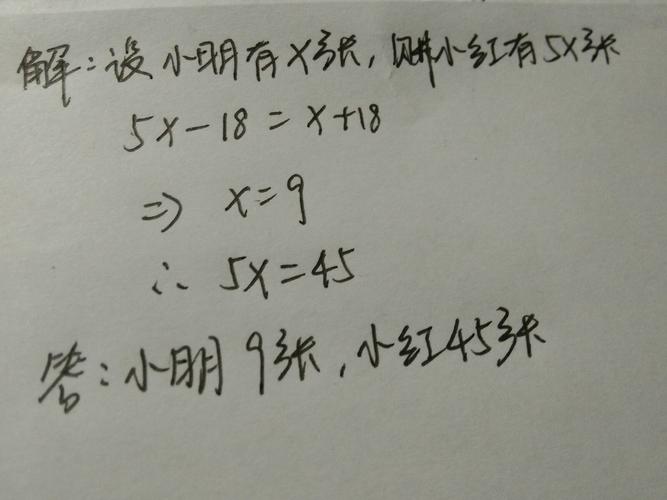 解：设小明有x张，则小红有5x张
5x-18=x+18
=> x=9
∴ 5x=45
答：小明9张，小红45张